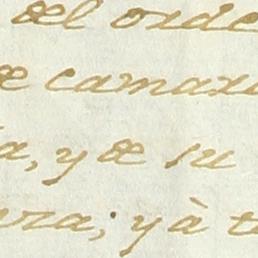 del orde
de camara
a, y de su
ura; y à